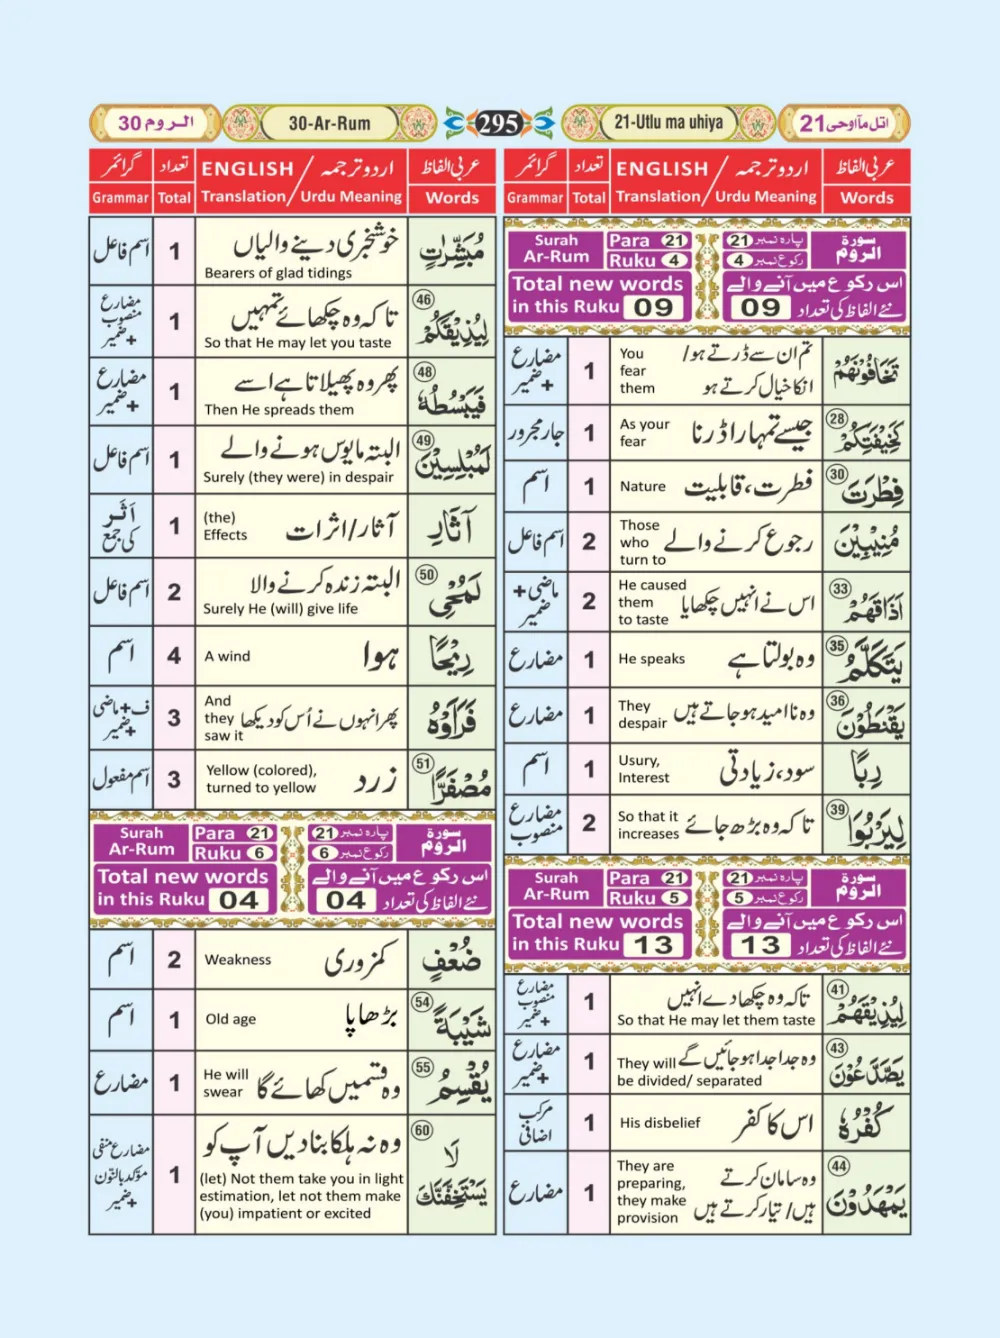 الروم 30
30-Ar-Rum
295
21-Utlu ma uhiya
اتل مآ اوحی 21
عربی الفاظ اردو ترجمہ / ENGLISH تعداد گرائمر
Words Urdu Meaning / Translation Total Grammar
سورۃ الروم
پارہ نمبر 21
رکوع نمبر 4
Surah Ar-Rum
Para 21
Ruku 4
اس رکوع میں آنے والے
نئے الفاظ کی تعداد 09
Total new words
in this Ruku 09
تَخَافُوْنَهُمْ تم ان سے ڈرتے ہو/ انکا خیال کرتے ہو You fear them 1 مضارع + ضمیر
كَخِيْفَتِكُمْ 28 جیسے تمہارا ڈرنا As your fear 1 جار مجرور
فِطْرَتَ 30 فطرت، قابلیت Nature 1 اسم
مُنِيْبِيْنَ رجوع کرنے والے Those who turn to 2 اسم فاعل
اَذَاقَهُمْ 33 اس نے انہیں چکھایا He caused them to taste 2 ماضی + ضمیر
يَتَكَلَّمُ 35 وہ بولتا ہے He speaks 1 مضارع
يَقْنَطُوْنَ 36 وہ نا امید ہو جاتے ہیں They despair 1 مضارع
رِبًا سود، زیادتی Usury, Interest 1 اسم
لِيَرْبُوَا 39 تاکہ وہ بڑھ جائے So that it increases 2 مضارع منصوب
سورۃ الروم
پارہ نمبر 21
رکوع نمبر 5
Surah Ar-Rum
Para 21
Ruku 5
اس رکوع میں آنے والے
نئے الفاظ کی تعداد 13
Total new words
in this Ruku 13
لِيُذِيْقَهُمْ 41 تاکہ وہ چکھا دے انہیں So that He may let them taste 1 مضارع منصوب + ضمیر
يَصَّدَّعُوْنَ 43 وہ جدا جدا ہو جائیں گے They will be divided/ separated 1 مضارع + ضمیر
كُفْرُهٗ اس کا کفر His disbelief 1 مرکب اضافی
يَمْهَدُوْنَ 44 وہ سامان کرتے ہیں/ تیار کرتے ہیں They are preparing, they make provision 1 مضارع
عربی الفاظ اردو ترجمہ / ENGLISH تعداد گرائمر
Words Urdu Meaning / Translation Total Grammar
مُبَشِّرٰتٍ خوشخبری دینے والیاں Bearers of glad tidings 1 اسم فاعل
لِيُذِيْقَكُمْ 46 تاکہ وہ چکھائے تمہیں So that He may let you taste 1 مضارع منصوب + ضمیر
فَيَبْسُطُهٗ 48 پھر وہ پھیلاتا ہے اسے Then He spreads them 1 مضارع + ضمیر
لَمُبْلِسِيْنَ 49 البتہ مایوس ہونے والے Surely (they were) in despair 1 اسم فاعل
اٰثَارِ آثار/ اثرات (the) Effects 1 اَثَر کی جمع
لَمُحْيِ 50 البتہ زندہ کرنے والا Surely He (will) give life 2 اسم فاعل
رِيْحًا ہوا A wind 4 اسم
فَرَاَوْهُ پھر انہوں نے اُس کو دیکھا And they saw it 3 ف + ماضی + ضمیر
مُصْفَرًّا 51 زرد Yellow (colored), turned to yellow 3 اسم مفعول
سورۃ الروم
پارہ نمبر 21
رکوع نمبر 6
Surah Ar-Rum
Para 21
Ruku 6
اس رکوع میں آنے والے
نئے الفاظ کی تعداد 04
Total new words
in this Ruku 04
ضُعْفٍ کمزوری Weakness 2 اسم
شَيْبَةً 54 بڑھاپا Old age 1 اسم
يُقْسِمُ 55 وہ قسمیں کھائے گا He will swear 1 مضارع
لَا يَسْتَخِفَّنَّكَ 60 وہ نہ ہلکا بنا دیں آپ کو (let) Not them take you in light estimation, let not them make (you) impatient or excited 1 مضارع منفی مؤکد بالنون + ضمیر